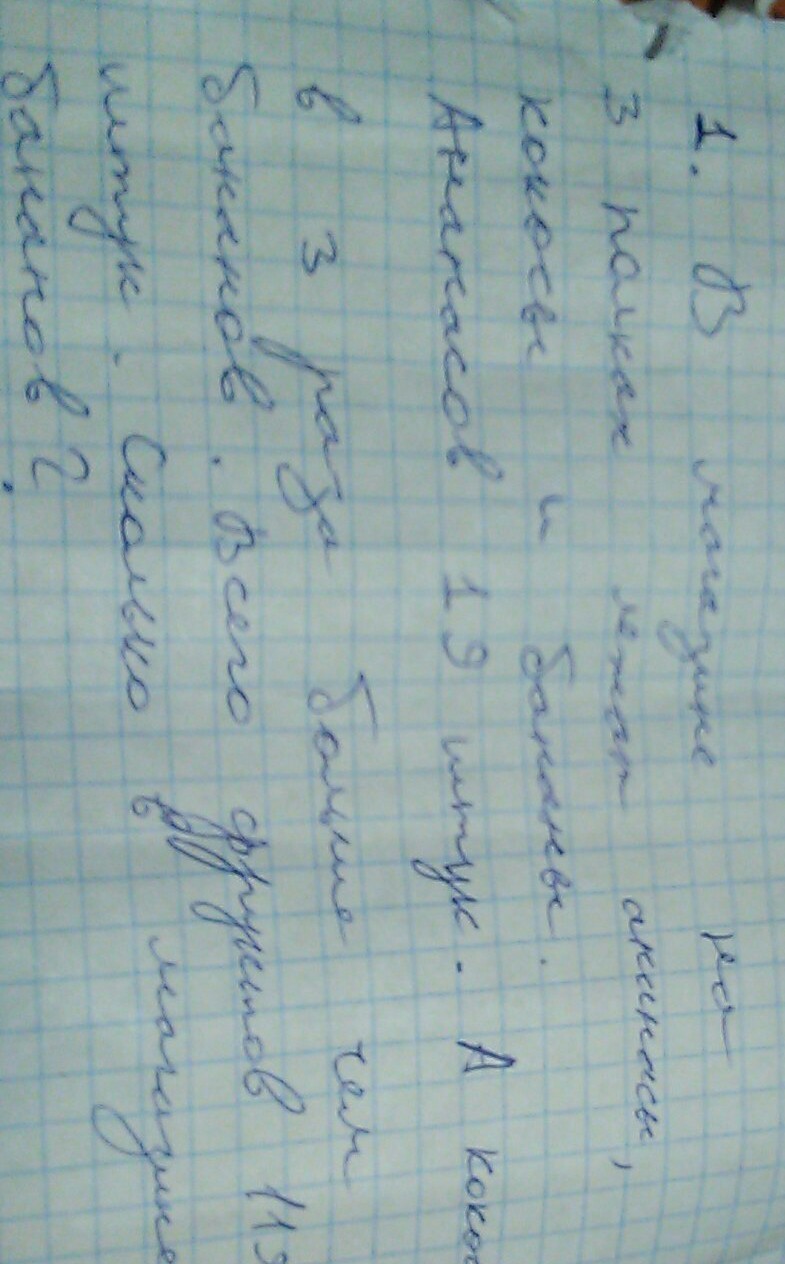 1. В магазине на
3 полках лежат ананасы,
кокосы и бананы.
Ананасов 19 штук. А коко
в 3 раза больше чем
бананов. Всего фруктов 119
штук. Сколько в магазине
бананов?